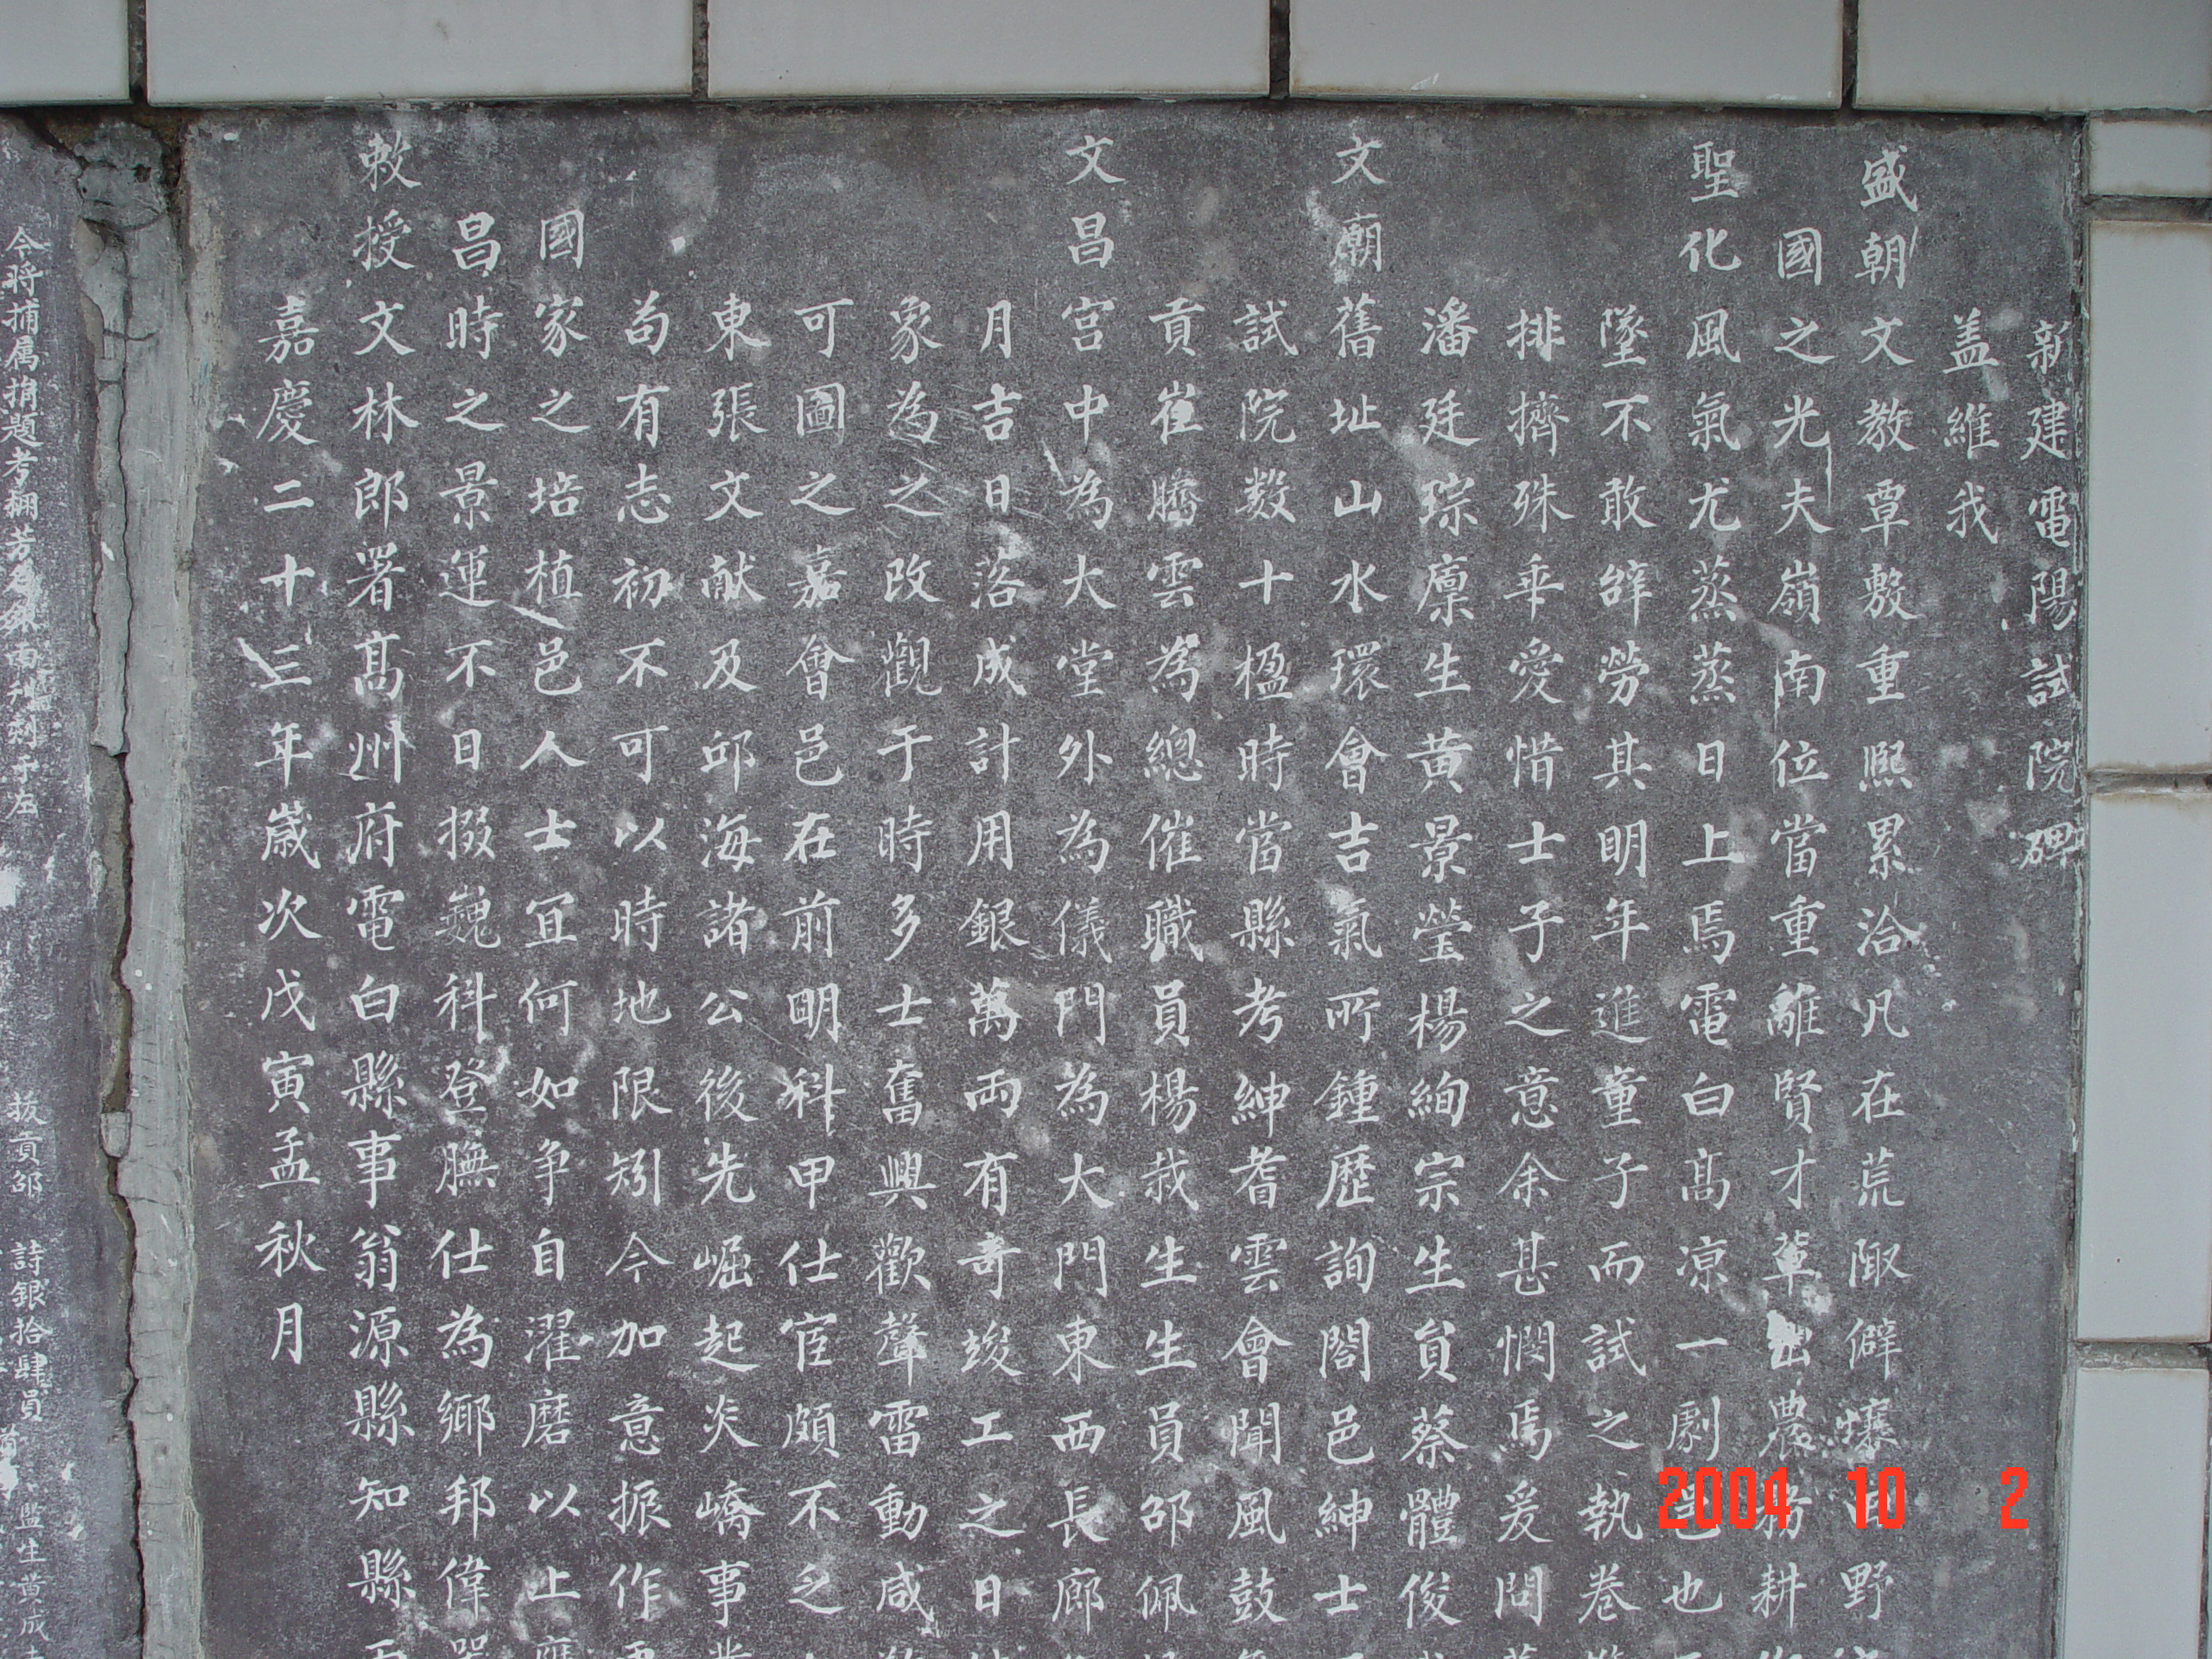 新建電陽試院碑
盖維我
盛朝文教覃敷重熙累洽凡在荒陬僻壤田野
國之光夫嶺南位當重離賢才蔚出農務耕
聖化風氣尤蒸蒸日上焉電白高凉一劇邑也
墜不敢辭勞其明年進童子而試之執卷
排擠殊乖愛惜士子之意余甚憫焉爰問
潘廷琮廪生黄景瑩楊絢宗生貟蔡體俊
文廟舊址山水環會吉氣所鍾歷詢閤邑紳士
試院数十楹時當縣考紳耆雲會聞風鼓
貢崔騰雲為總催職員楊栽生生員邵佩
文昌宫中為大堂外為儀門為大門東西長廊
月吉日落成計用銀萬两有奇竣工之日
象為之改觀于時多士奮興歡聲雷動咸
可圖之嘉會邑在前明科甲仕宦頗不乏
東張文献及邱海諸公後先崛起炎嶠事
苟有志初不可以時地限矧今加意振作
國家之培植邑人士宜何如争自濯磨以上應
昌時之景運不日掇巍科登膴仕為鄉邦偉
敕授文林郎署髙州府電白縣事翁源縣知縣
嘉慶二十三年歲次戊寅孟秋月
令將捕属捐題考棚芳名
拔貢邵 詩銀拾肆員
監生黄成
2004 10 2